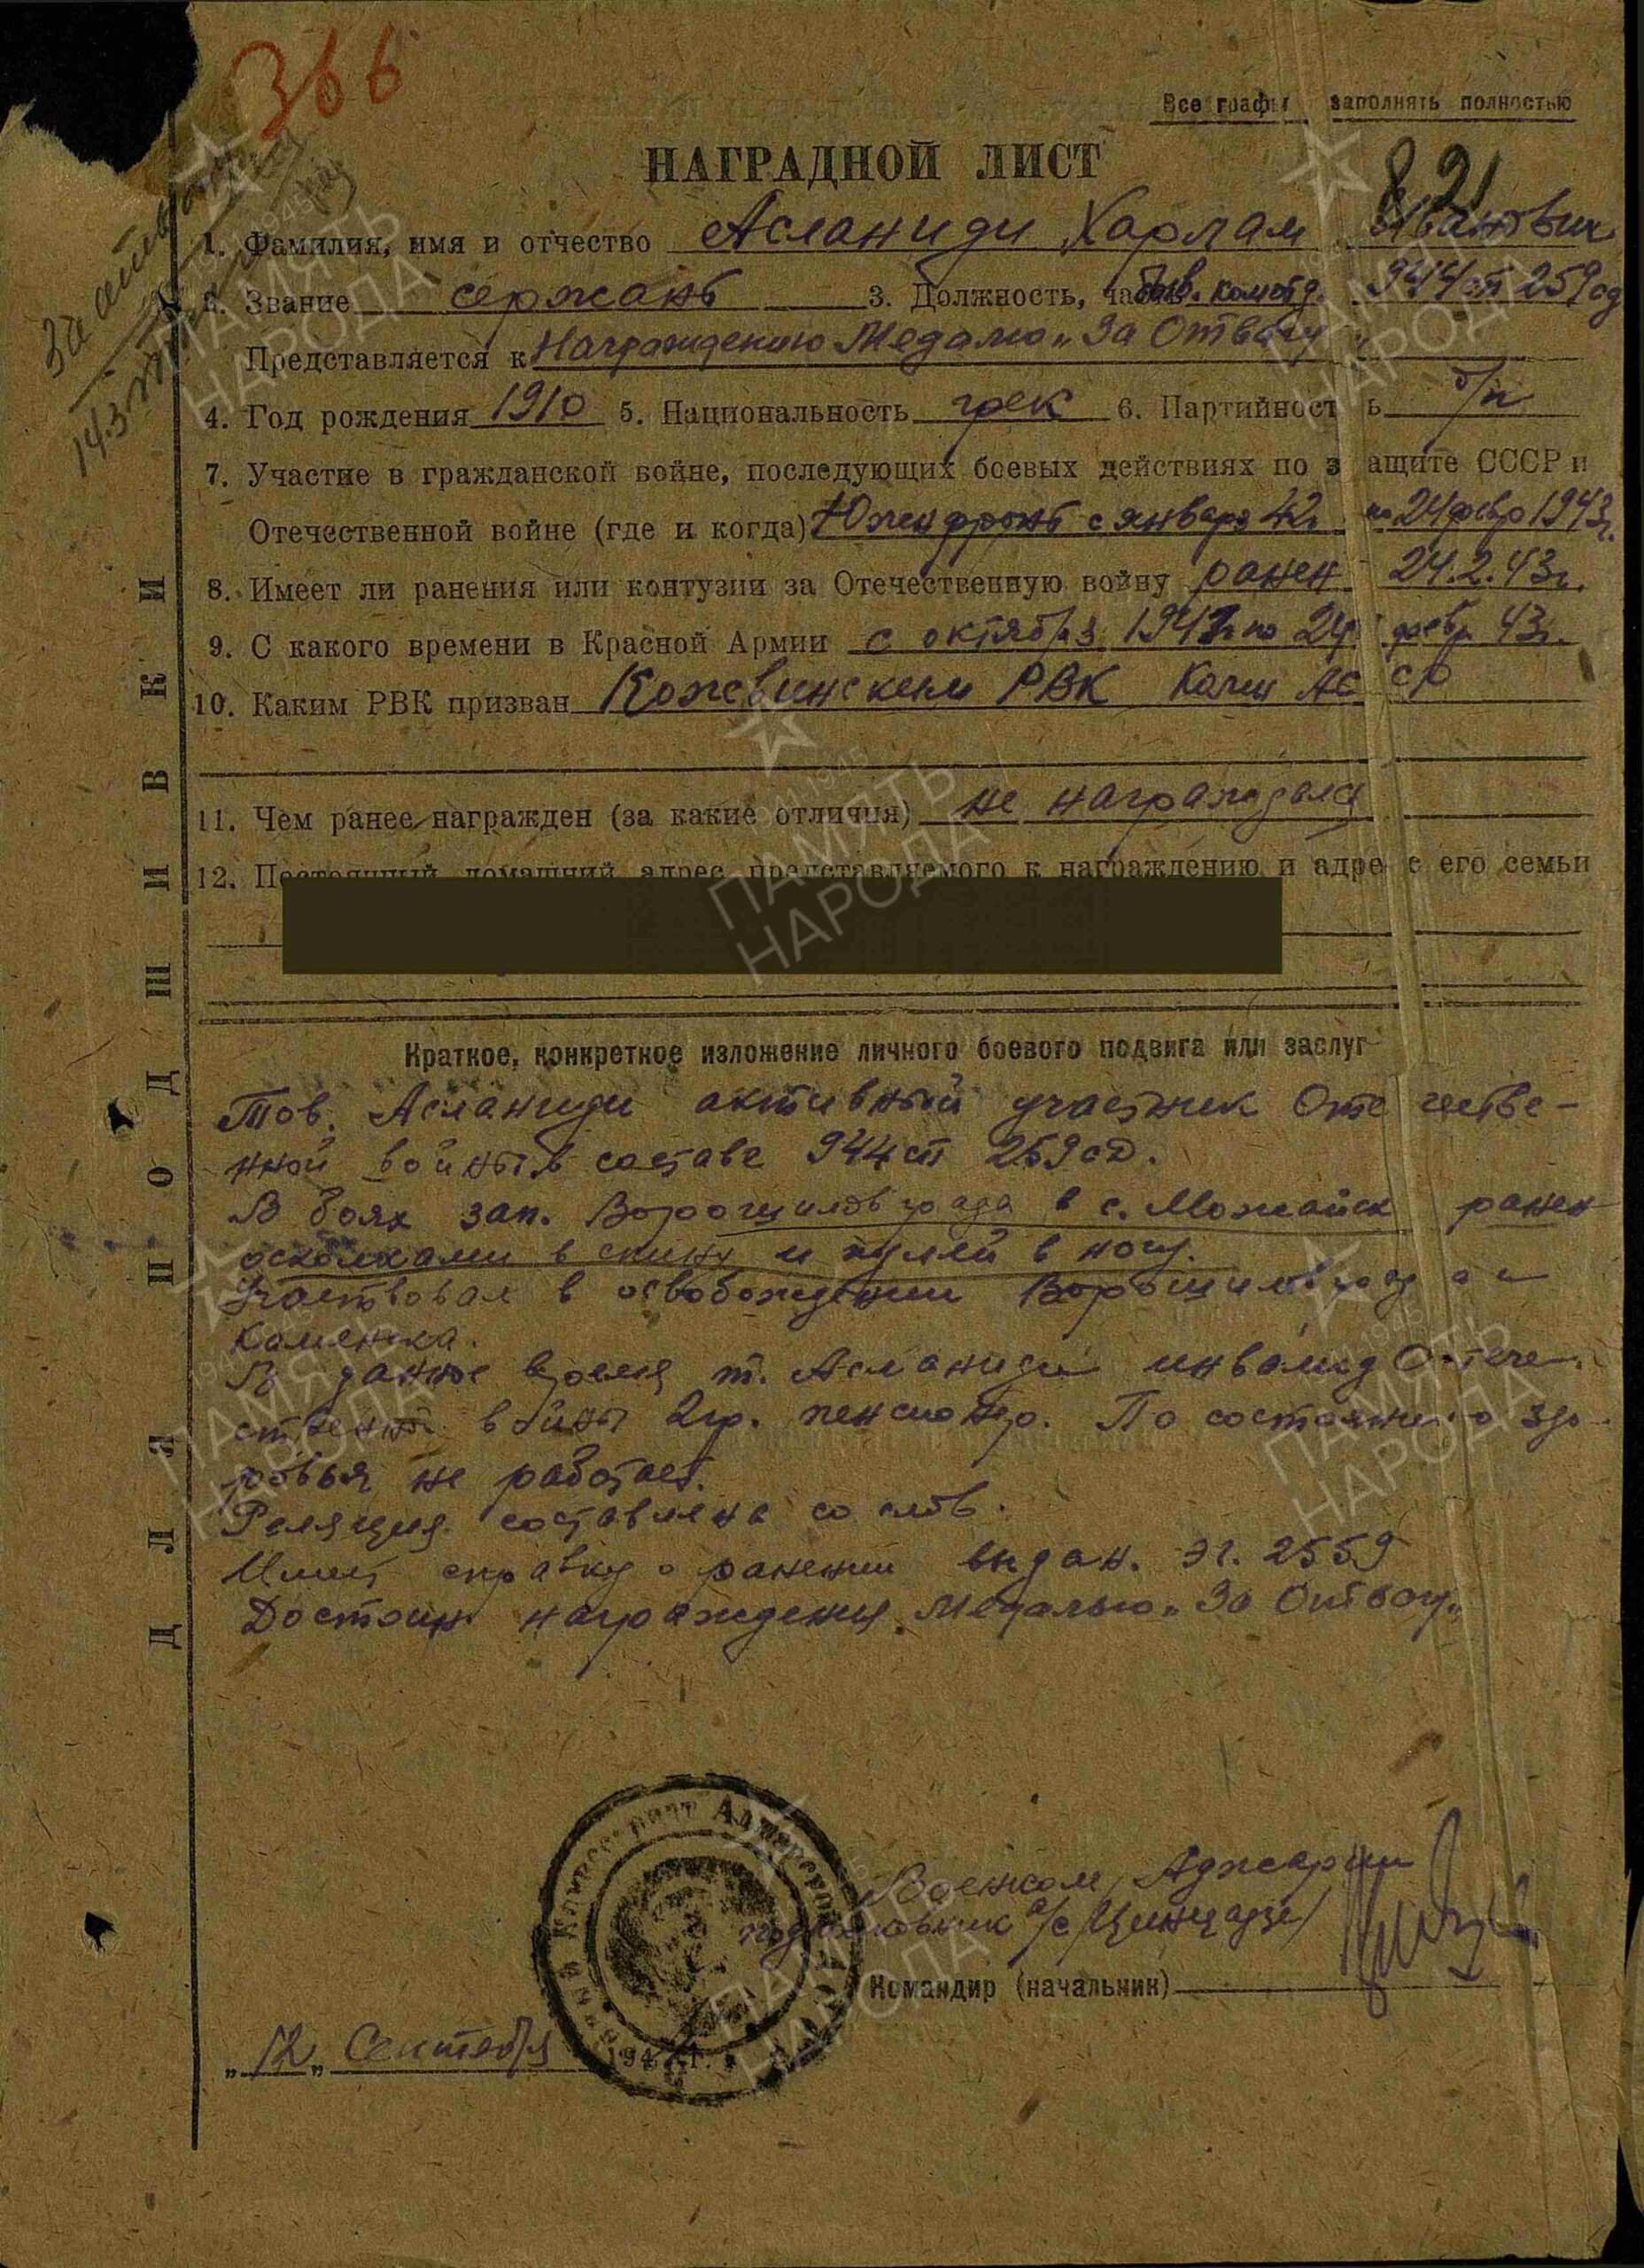 366
Все графы заполнять полностью
821
НАГРАДНОЙ ЛИСТ
1. Фамилия, имя и отчество Асланиди Харлам Иванович
2. Звание сержант 3. Должность, часть быв. комотд. 944 сп 259 сд
Представляется к Награждению Медалью „За Отвагу"
4. Год рождения 1910 5. Национальность грек 6. Партийность б/п
7. Участие в гражданской войне, последующих боевых действиях по защите СССР и
Отечественной войне (где и когда) Южн фронт с января 42г по 24 февр 1943г.
8. Имеет ли ранения или контузии за Отечественную войну ранен 24.2.43г.
9. С какого времени в Красной Армии с октября 1941г по 24 февр 43г.
10. Каким РВК призван РВК АССР
11. Чем ранее награжден (за какие отличия) не награждался
12. Постоянный домашний адрес представляемого к награждению и адрес его семьи
ДЛЯ ПОДШИВКИ
Краткое, конкретное изложение личного боевого подвига или заслуг
Тов. Асланиди активный участник Отечестве-
нной войны в составе 944 сп 259 сд.
В боях зап. Ворошиловграда в с. Можайск ранен
осколками в спину и пулей в ногу.
Участвовал в освобождении Ворошиловграда и
Каменка.
В данное время т. Асланиди инвалид Отече-
ственной войны 2гр. пенсионер. По состоянию здо-
ровья не работает.
Реляция составлена со слов.
Имеет справку о ранении выдан. эг. 2559
Достоин награждения Медалью „За Отвагу"
Военком Аджарии
подполковник а/с /Цинцадзе/
Командир (начальник)
„12" Сентября 194 г.
ПАМЯТЬ НАРОДА
1941 1945